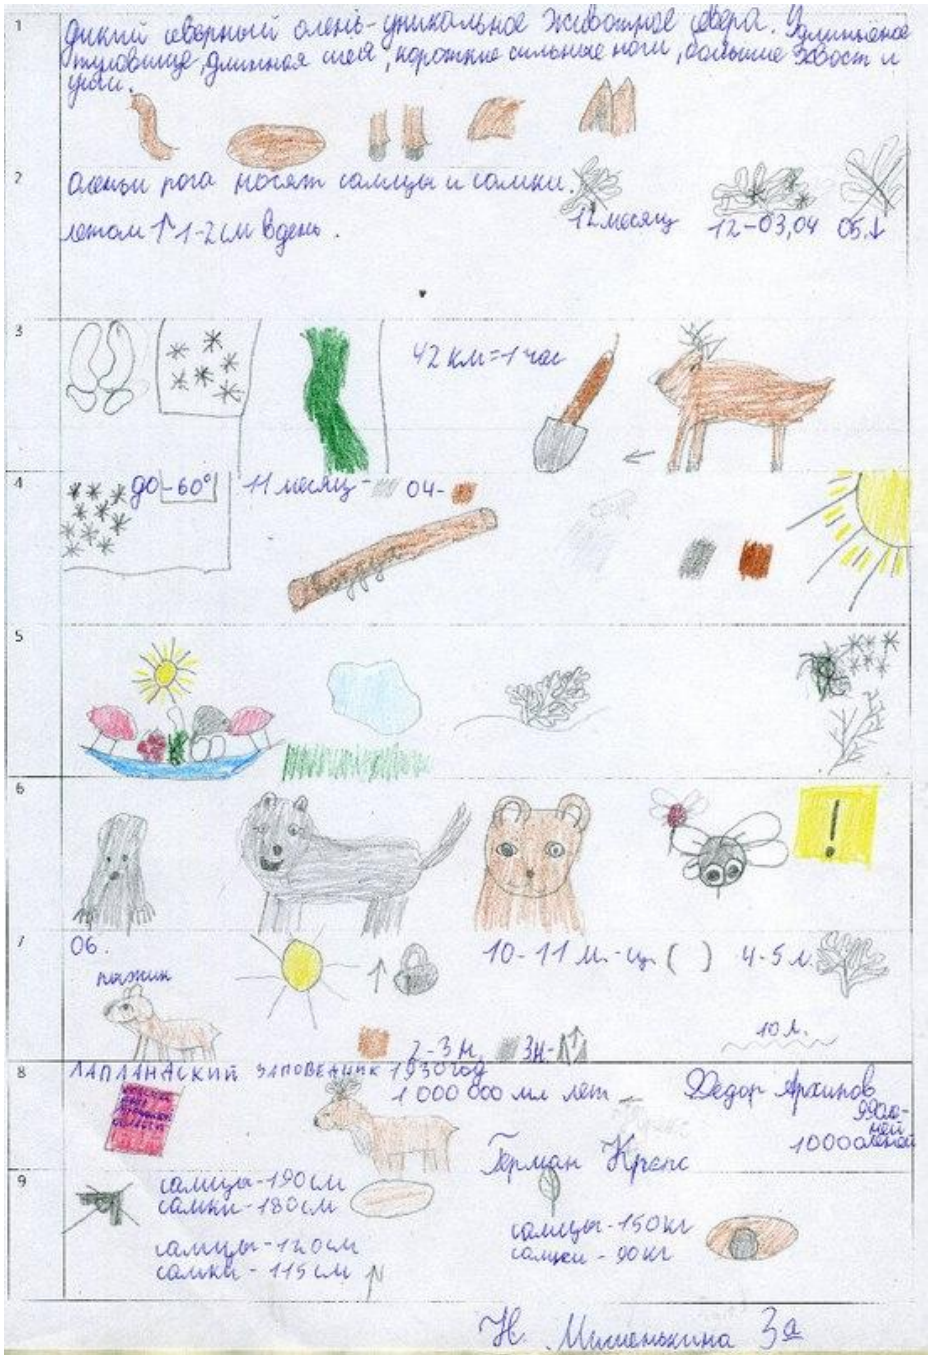 1
дикий северный олень-уникальное животное севера. Удлинённое
туловище, длинная шея, короткие сильные ноги, большие хвост и
уши.
2
Оленьи рога носят самцы и самки.
12 месяц 12-03,04 05.↓
летом ↑ 1-2 см в день.
3
42 км=1 час
4
до -60° 11 месяц - 04-
5
6
!
7
06. 10-11 м.-ц. ( ) 4-5 м.
пыжик
10 л.
2-3 н. 3н-
8
ЛАПЛАНДСКИЙ ЗАПОВЕДНИК 1930год
1 000 000 мл лет - Федор Архипов
1000 оленей
Герман Крепс
9
самцы-190 см
самки-180 см
самцы-150кг
самки - 90кг
самцы-120см
самки - 115 см
Н. 3а